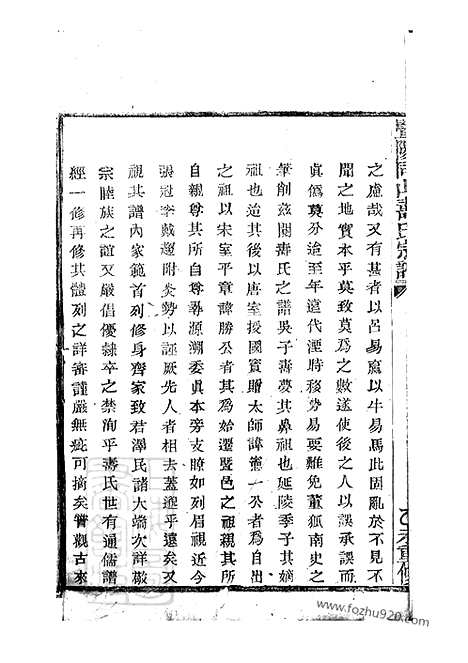 暨陽
壽氏宗譜
之慮哉又有甚者以呂易嬴以牛易馬此固亂於不見不
聞之地實水乎莫致莫爲之數遂使後之人以誤承誤而
眞僞莫分迨至年遠代湮時移勢易要難免董狐南史之
筆削茲閱壽氏之譜吳子壽夢其鼻祖也延陵季子其嫡
祖也迨其後以唐室授國賓贈太師諱 一公者爲自出
之祖以宋室平章諱勝公者其爲始遷暨邑之祖親其所
自親尊其所自尊尋源溯委眞本旁支瞭如列眉視近今
張冠李戴趨附炎勢以誣厥先人者相去蓋邈乎遠矣又
視其譜內家範首列修身齊家致君澤民諸大端次詳敬
宗睦族之誼又嚴倡優隸卒之禁洵乎壽氏世有通儒譜
經一修再修其體列之詳審謹嚴無疵可摘矣嘗觀古來
乙未重修
www.fozhu920.com